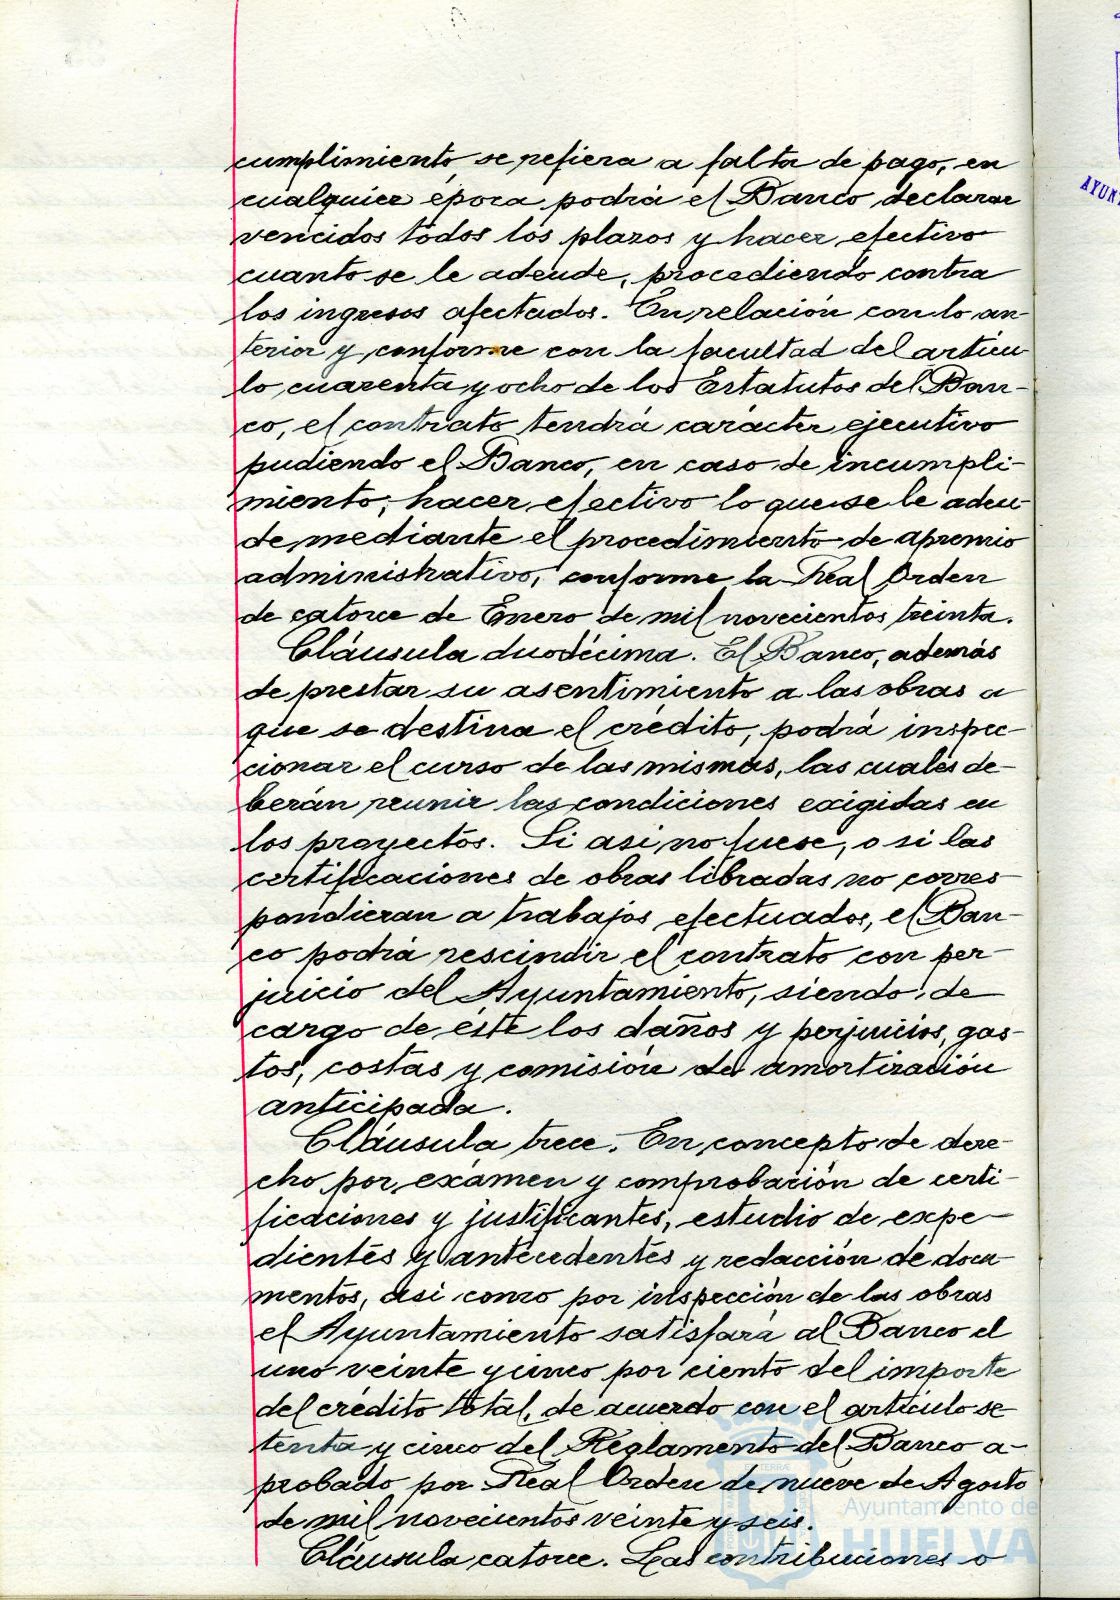 cumplimiento, se refiera a falta de pago, en
cualquier época podrá el Banco declarar
vencidos todos los plazos y hacer efectivo
cuanto se le adeude, procediendo contra
los ingresos afectados. En relación con lo an-
terior y conforme con la facultad del artícu
lo cuarenta y ocho de los Estatutos del Ban-
co, el contrato tendrá carácter ejecutivo
pudiendo el Banco, en caso de incumpli-
miento, hacer efectivo lo que se le adeu-
de mediante el procedimiento de apremio
administrativo, conforme la Real Orden
de catorce de Enero de mil novecientos treinta.
Cláusula duodécima. El Banco, además
de prestar su asentimiento a las obras a
que se destina el crédito, podrá inspec-
cionar el curso de las mismas, las cuales de-
berán reunir las condiciones exigidas en
los proyectos. Si así no fuese, o si las
certificaciones de obras libradas no corres-
pondieran a trabajos efectuados, el Ban-
co podrá rescindir el contrato con per-
juicio del Ayuntamiento, siendo de
cargo de éste los daños y perjuicios, gas-
tos, costas y comisión de amortización
anticipada.
Cláusula trece. En concepto de dere-
cho por exámen y comprobación de certi-
ficaciones y justificantes, estudio de expe-
dientes y antecedentes y redacción de docu-
mentos, así como por inspección de las obras
el Ayuntamiento satisfará al Banco el
uno veinte y cinco por ciento del importe
del crédito total, de acuerdo con el artículo se
tenta y cinco del Reglamento del Banco a-
probado por Real Orden de nueve de Agosto
de mil novecientos veinte y seis.
Cláusula catorce. Las contribuciones o
Ayuntamiento de
HUELVA